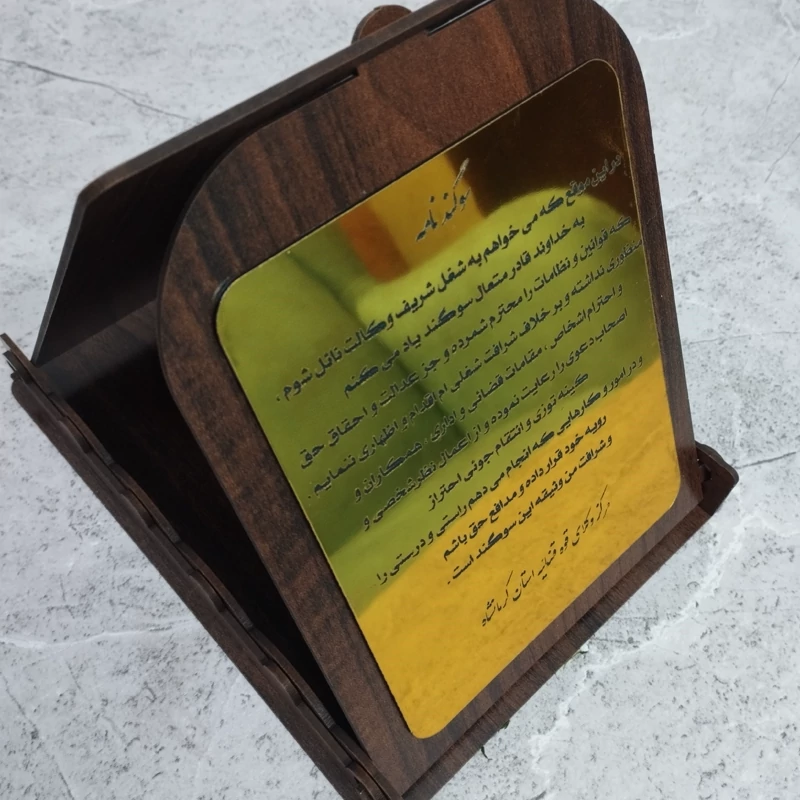 سوگندنامه
در این موقع که می خواهم به شغل شریف وکالت نائل شوم .
به خداوند قادر متعال سوگند یاد می کنم
که قوانین و نظامات را محترم شمرده و جز عدالت و احقاق حق
نداشته و بر خلاف شرافت شغلی ام اقدام و اظهاری ننمایم .
و احترام اشخاص ، مقامات قضائی و اداری ، همکاران و
اصحاب دعوی را رعایت نموده و از اعمال نظر شخصی و
کینه توزی و انتقام جوئی احتراز
و در امور و کارهایی که انجام می دهم راستی و درستی را
رویه خود قرار داده و مدافع حق باشم
و شرافت من وثیقه این سوگند است .
مرکز وکلای قوه قضائیه استان کرمانشاه